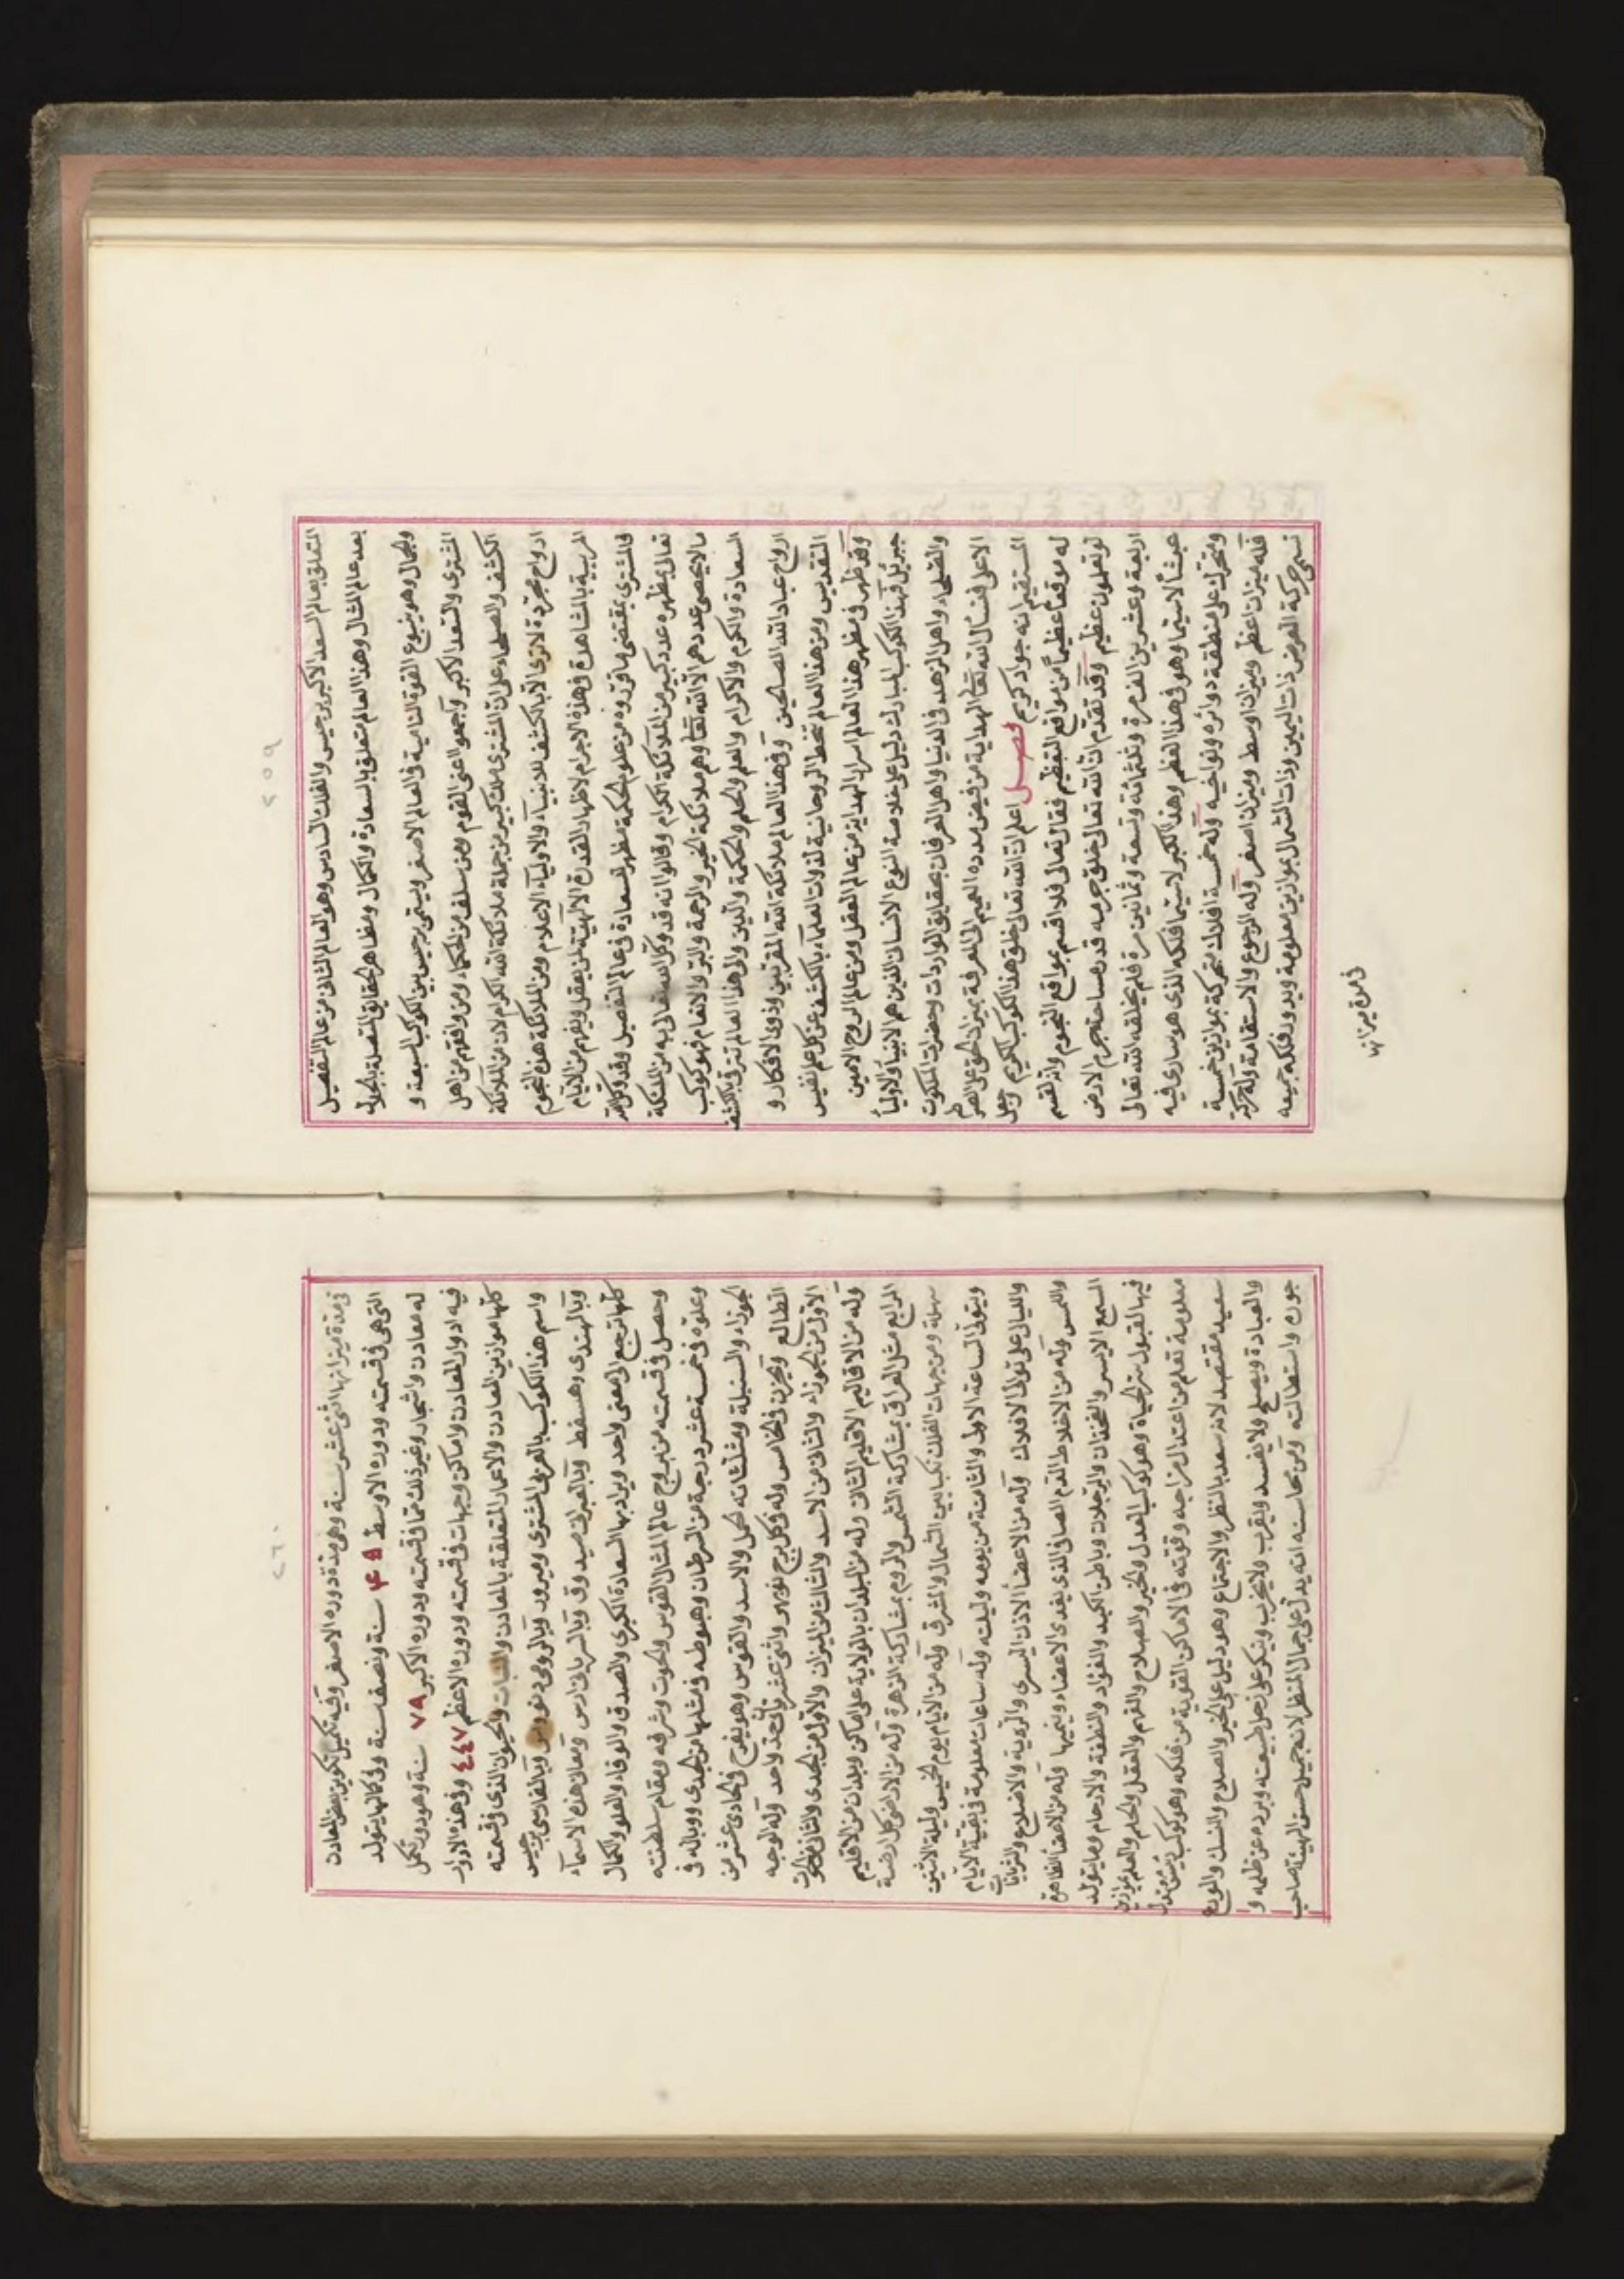 ٢٥٩
المتعلق بعالم السعد الاكبر برجيس والفلك السادس وهو العالم الثانى من عالم التفصيل
بعد عالم المثال وهذا العالم متعلق بالسعادة والكمال ومظاهر الحقايق المتصلة بالجلال
والجمال وهو ينبوع القوة النامية فى العالم الاصغر ويسمى برجيس بين الكواكب السبعة و
المشترى والسعد الاكبر واجمعوا اعنى القوم ومن سلف من الحكماء ومن وافقهم من اهل
الكشف والصلحاء على ان المشترى ملك كبير من جملة ملائكة الله الكرام لان من الملائكة
ارواح مجردة لا ترى الا بالكشف للانبياء والاولياء الاعلام ومن الملائكة هذه النجوم
المربية بالمشاهدة فى هذه الاجرام لاظهار القدرة الالهية لمن يعقل ويفهم من الانام
فالمشترى بمقتضى ما قرروه من علوم الحكمة مظهر السعادة فى عالم التفصيل وقد وكل الله
تعالى بمظهره عدد كبير من الملائكة الكرام وقالوا انه قد وكل الله تعالى به من الملئكة
مالا يحصى عددهم الا الله تعالى وهم ملائكة الخير والرحمة والبر والانعام فهو كوكب
السعادة والكرم والاكرام والعلم والحلم والحكمة والدين والى هذا العالم تترقى بالكشف
ارواح عباد الله الصالحين وفى هذا العالم ملائكة الله المقربين وذوى الافكار و
التقديس ومن هذا العالم تنحط الروحانية لذوات العلماء بالكشف عن كل علم نفيس
وقد ظهر فى مظهر هذا العالم اسرار الهداية من عالم العقل ومن عالم الروح الامين
جبرئيل فهذا الكوكب المبارك دليل على خلاصة النوع الانسانى الذين هم الانبياء والاولياء
والصلحاء واهل الزهد فى الدنيا واهل العرفان بحقايق الواردات وحضرات الملكوت
الاعلى فنسأل الله تعالى الهداية من فيض مدده العميم الى المعرفة بميزان الحق على الصراط
المستقيم انه جواد كريم فصل اعلم ان الله تعالى خلق هذا الكوكب الكريم وجعل
له موقعاً عظيماً من مواقع التعظيم فقال تعالى فلا اقسم بمواقع النجوم وانه لقسم
لو تعلمون عظيم وقد تقدم ان الله تعالى خلق جرمه قدر مساحة جرم الارض
اربعة وعشرين الف مرة وثلثمائة وتسعة وثمانين مرة فلم يخلقه الله تعالى
عبثاً لا سيما وهو فى هذا العظم وهذا الكبر لا سيما فلكه الذى هو سارى فيه
ومتحرك على منطقة دوائره ونواخيه وله خمسة افلاك متحركة بموازين خمسة
فله ميزان اعظم وميزان اوسط وميزان اصغر وله الرجوع والاستقامة وله حركة
تسمى حركة العرض ذات اليمين وذات الشمال بموازين معلومة ويدور فلكه جميعه
فى مدة ميزانها
٢٦٠
فى مدة ميزانها اثنى عشر سنة وهى مدة دوره الاصغر وفيه تكميل تكوين بعض المعادن
التى هى فى قسمته ودوره الاوسط ٤٥ سنة ونصف سنة وفى كمالها يتولد
له معادن واشجار وغير ذلك مما فى قسمته ودوره الاكبر ٧٩ سنة وهو دور تكمل
فيه ادوار المعادن واماكن وجهات فى قسمته ودوره الاعظم ٤٤٧ وفى هذه الادوار
كلها موازين المعادن والاعمار المتعلقة بالمعادن والنبات والحيوان الذى فى قسمته
واسم هذا الكوكب بالعربى المشترى وبيرود وبالرومى وبالفارسى برجيس
وبالهندى وهسفط وبالعبرانى صيدوق وبالسريانى ارس ومعانى هذه الاسماء
كلها ترجع الى معنى واحد ويراد بها السعادة الكبرى والصدق والوفاء والعلو والكمال
وحصل فى قسمته من بروج عالم المثال القوس والحوت وشرفه ومقام سلطنته
وعلوه فى خمسة عشر درجة من السرطان وهبوطه فى مثلها من الجدى ووباله فى
الجوزاء والسنبلة ومثلثاته الحمل والاسد والقوس وهو يفرح فى الحادى عشر من
الطالع ويحزن فى الخامس وله فى كل برج نوبهر واثنى عشرية حد واحد وله الوجه
الاول من الجوزاء والثانى من الاسد والثالث من الميزان والاول من الجدى والثانى من الحوت
وله من الاقاليم الاقليم الثانى وله من البلدان بالولاية على اماكن وبلدان من الاقليم
الرابع مثل العراق بمشاركة الشمس والروم بمشاركة الزهرة وله من الاراضى كل ارض
سهلة ومن جهات الفلك نكبا بين الشمال والمشرق وله من الايام يوم الخميس وليلة الاثنين
ويتولى الساعة الاولى والثامنة من يومه وليلته وله ساعات معلومة فى بقية الايام
والليالى على توالى الافلاك وله من الاعضاء الاذن اليسرى والرية والاضلاع والشريانات
واللمس وله من الاخلاط الدم الصافى الذى يغذى الاعضاء وينميها وله من الاعضاء الظاهرة
السمع الايسر والفخذان والرجلان وباطن الكبد والفؤاد والنطفة والارحام وما يتولد
فيها لقبول سر الحياة وهو كوكب العدل والخير والصلاح والفهم والعقل والحلم والعلم بموازين
معلومة تعلم من اعتدال مزاجه وقوته فى الاماكن القوية من فلكه وهو كوكب ديّن معتدل
سعيد مقتصد لانه سعد بالنظر والاجتماع وهو دليل على الخير والصلاح والنسك والورع
والعبادة ويصلح ولا يفسد ويقرب ولا يخرب وينكر على زحل طبيعته ويرده عن ظلمه و
جوره واستطالته ومن محاسنه انه يدل على جمال المنظر لانه جميل حسن الهيئة صاحب